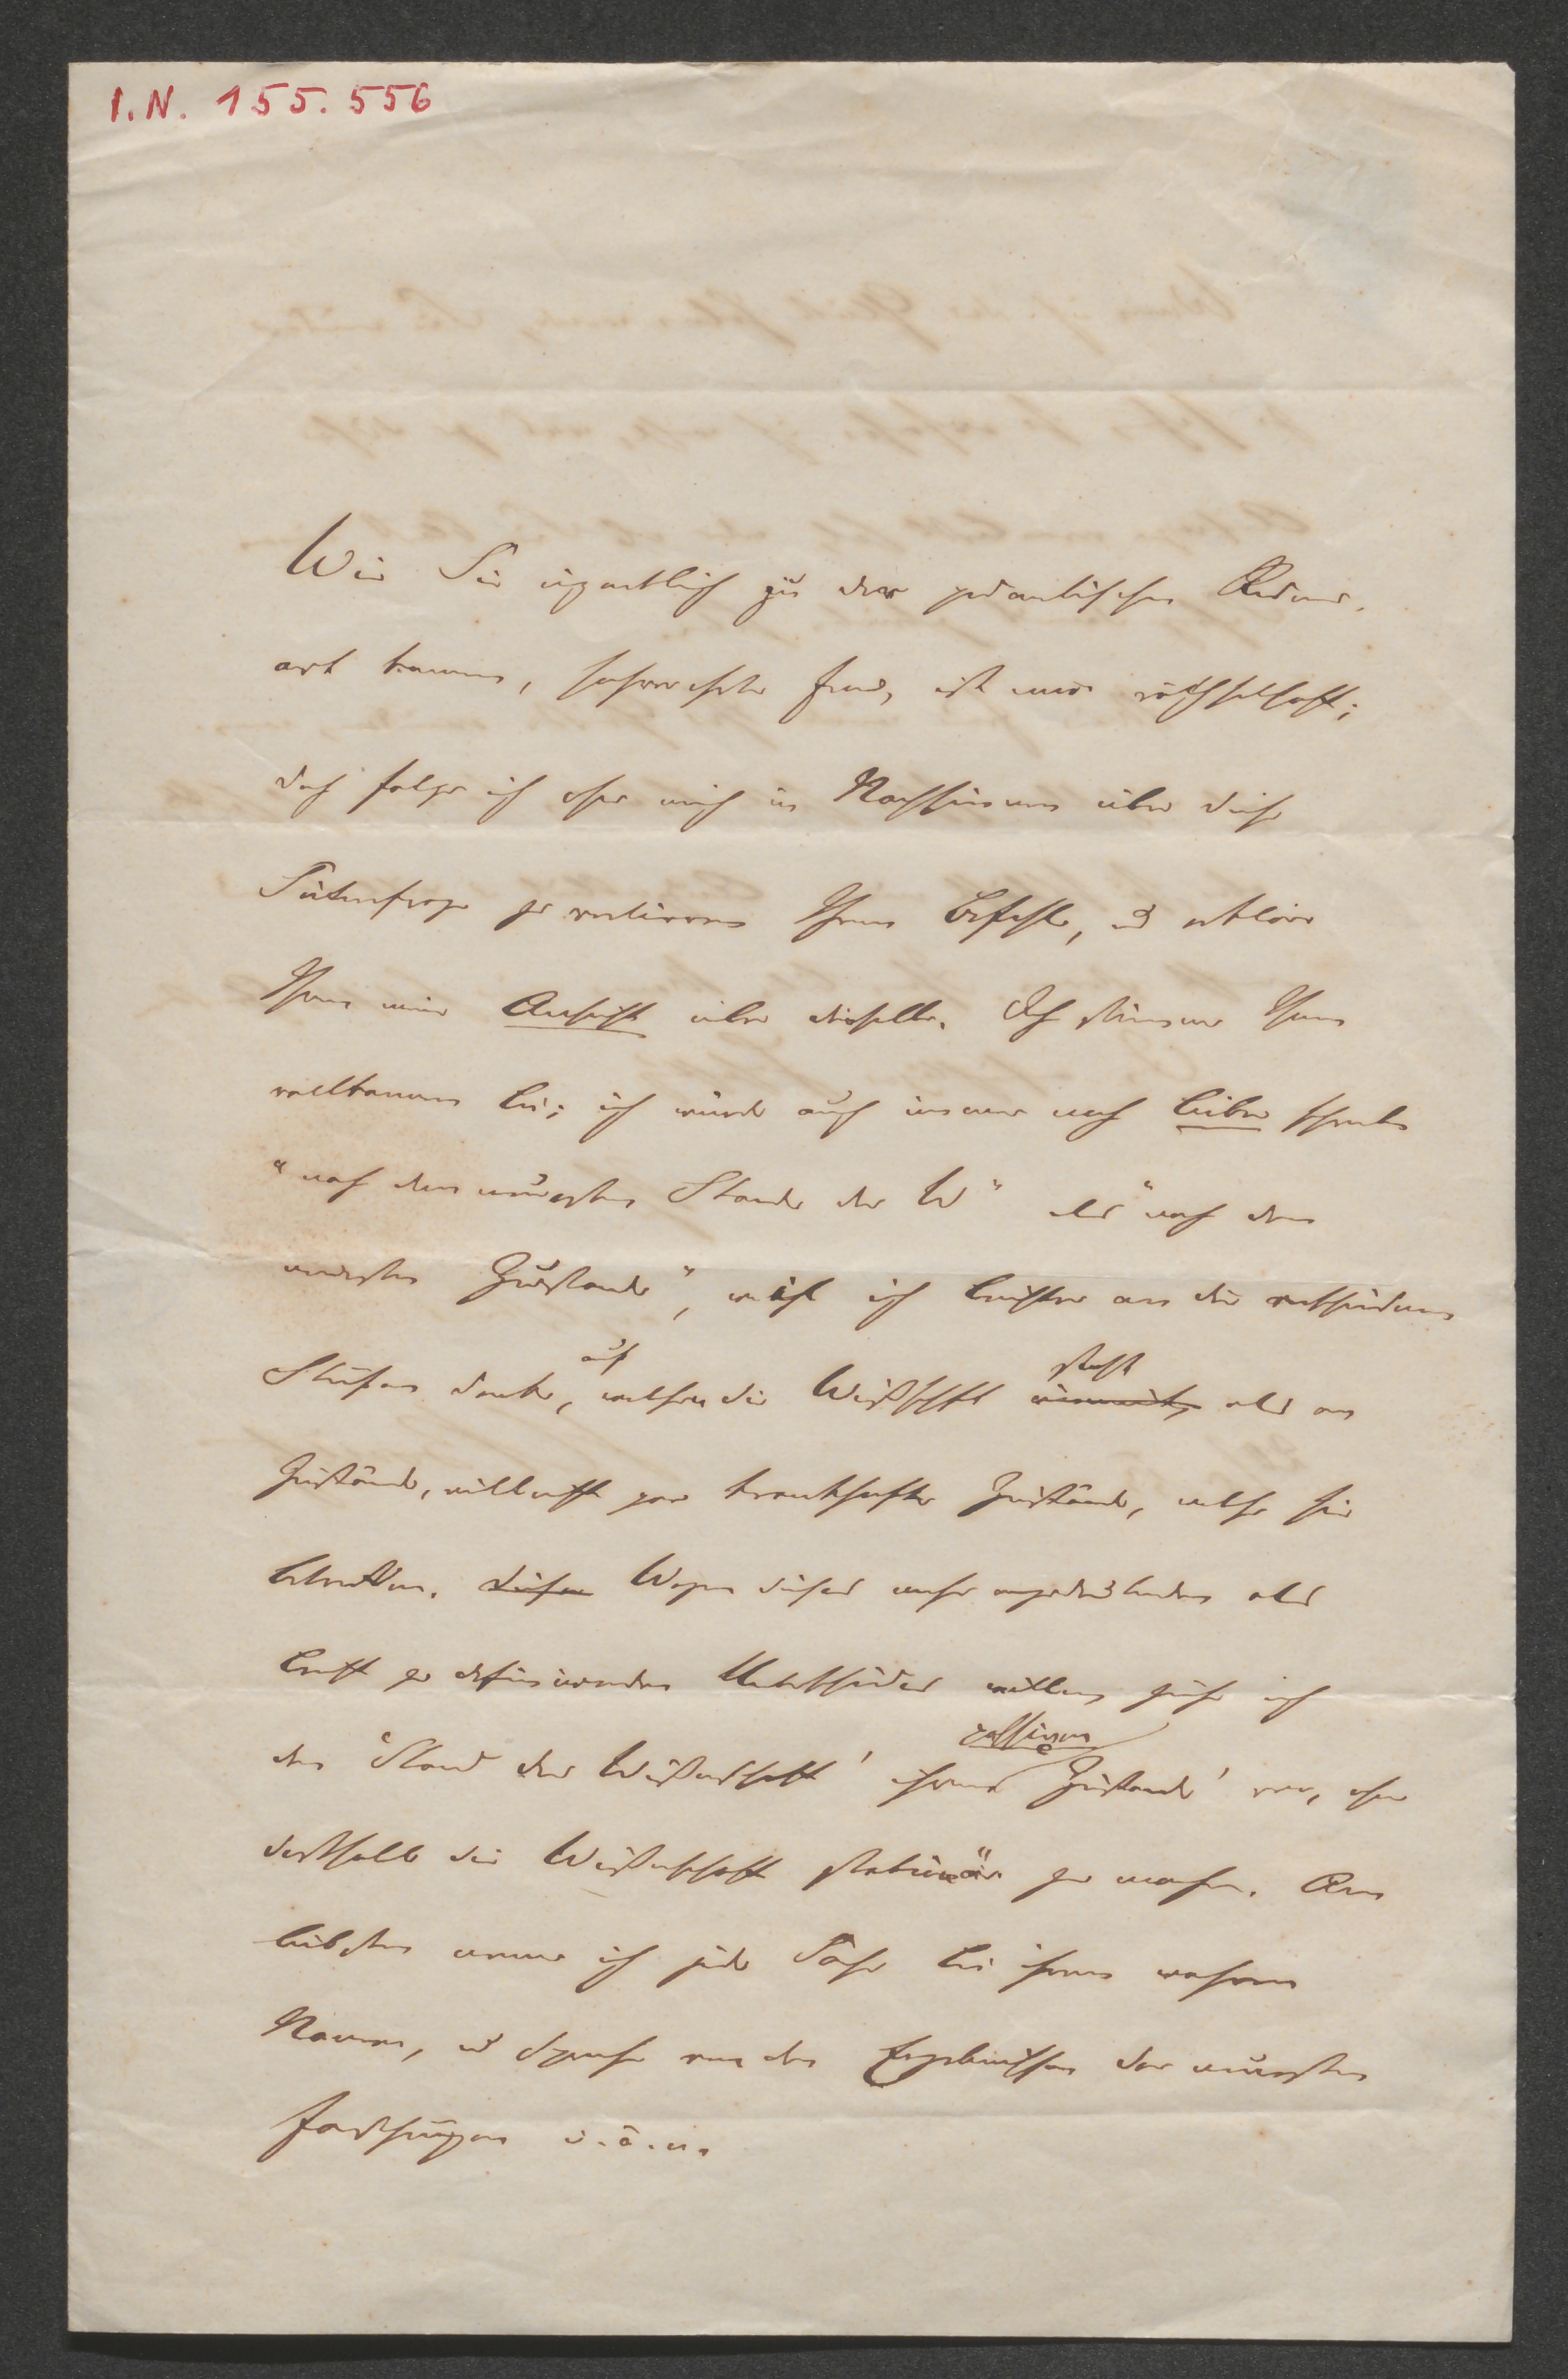 I.N. 155.556
Wie Sie eigentlich zu der pedantischen Redens-
art kamen, hochverehrter Freund, ist mir räthselhaft;
doch folge ich ohne mich in Nachsinnen über diese
Seitenfrage zu verlieren Ihrem Befehle, und erkläre
Ihnen meine Ansicht über dieselbe. Ich stimme Ihnen
vollkommen bei; ich würde auch immer noch lieber schreiben
"nach dem neuesten Stande der W" als "nach dem
neuesten Zustande", weil ich leichter an die verschiedenen
Stufen denke, auf welchen die Wißschft einnimt, steht als an
Zustände, vielleicht gar krankhafte Zustände, welche sie
betreffen. diesen Wegen dieses mehr anzudeutenden als
leicht zu definirenden Unterschiedes willen ziehe ich
den 'Stand der Wißenschaft' ihrem Zustande' vor, ohne
deßhalb die Wißenschaft stationär zu machen. Am
liebsten nenne ich jede Sache bei ihrem wahren
Namen, und spreche von den Ergebnissen der neuesten
Forschungen u. ä. m.